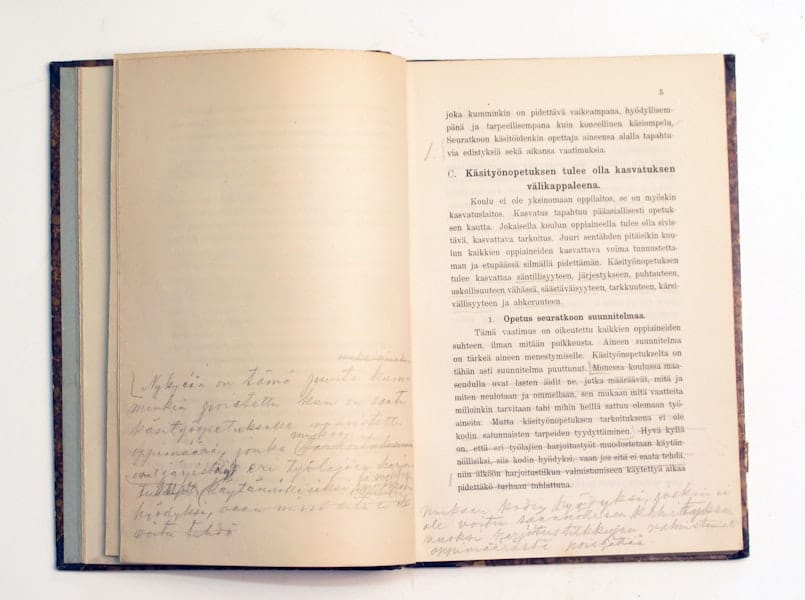 Nykyään on tämä puute kum-
minkin poistettu kun on saatu
käsityönopetukselle
oppimäärä, jonka mukaan
eri työlajien
käytännöllisiksi
hyödyksi, vaan missä sitä ei ole
voitu tehdä
5
joka kumminkin on pidettävä vaikeampana, hyödyllisem-
pänä ja tarpeellisempana kuin koneellinen käsiompelu.
Seuratkoon käsitöidenkin opettaja aineensa alalla tapahtu-
via edistyksiä sekä aikansa vaatimuksia.
1.
C. Käsityönopetuksen tulee olla kasvatuksen
välikappaleena.
Koulu ei ole yksinomaan oppilaitos, se on myöskin
kasvatuslaitos. Kasvatus tapahtuu pääasiallisesti opetuk-
sen kautta. Jokaisella koulun oppiaineella tulee olla sivis-
tävä, kasvattava tarkoitus. Juuri sentähden pitäisikin kou-
lun kaikkien oppiaineiden kasvattava voima tunnustetta-
man ja etupäässä silmällä pidettämän. Käsityönopetuksen
tulee kasvattaa säntillisyyteen, järjestykseen, puhtauteen,
uskollisuuteen vähässä, säästäväisyyteen, tarkkuuteen, kärsi-
vällisyyteen ja ahkeruuteen.
1. Opetus seuratkoon suunnitelmaa.
Tämä vaatimus on oikeutettu kaikkien oppiaineiden
suhteen, ilman mitään poikkeusta. Aineen suunnitelma
on tärkeä aineen menestymiselle. Käsityönopetukselta on
tähän asti suunnitelma puuttunut. Monessa koulussa maa-
seudulla ovat lasten äidit ne, jotka määräävät, mitä ja
miten neulotaan ja ommellaan, sen mukaan mitä vaatteita
milloinkin tarvitaan tahi mihin heillä sattuu olemaan työ-
aineita. Mutta käsityönopetuksen tarkoituksena ei ole
kodin satunnaisten tarpeiden tyydyttäminen. Hyvä kyllä
on, että eri työlajien harjoitustyöt muodostetaan käytän-
nöllisiksi, siis kodin hyödyksi, vaan jos sitä ei saata tehdä,
niin älköön harjoitustilkun valmistamiseen käytettyä aikaa
pidettäkö turhaan tuhlattuna.
mukaan kodin hyödyksi, joskin ei
ole voitu säännöllisen kehityksen
vuoksi harjoitustilkkujen valmistamista
oppimäärästä poistaa